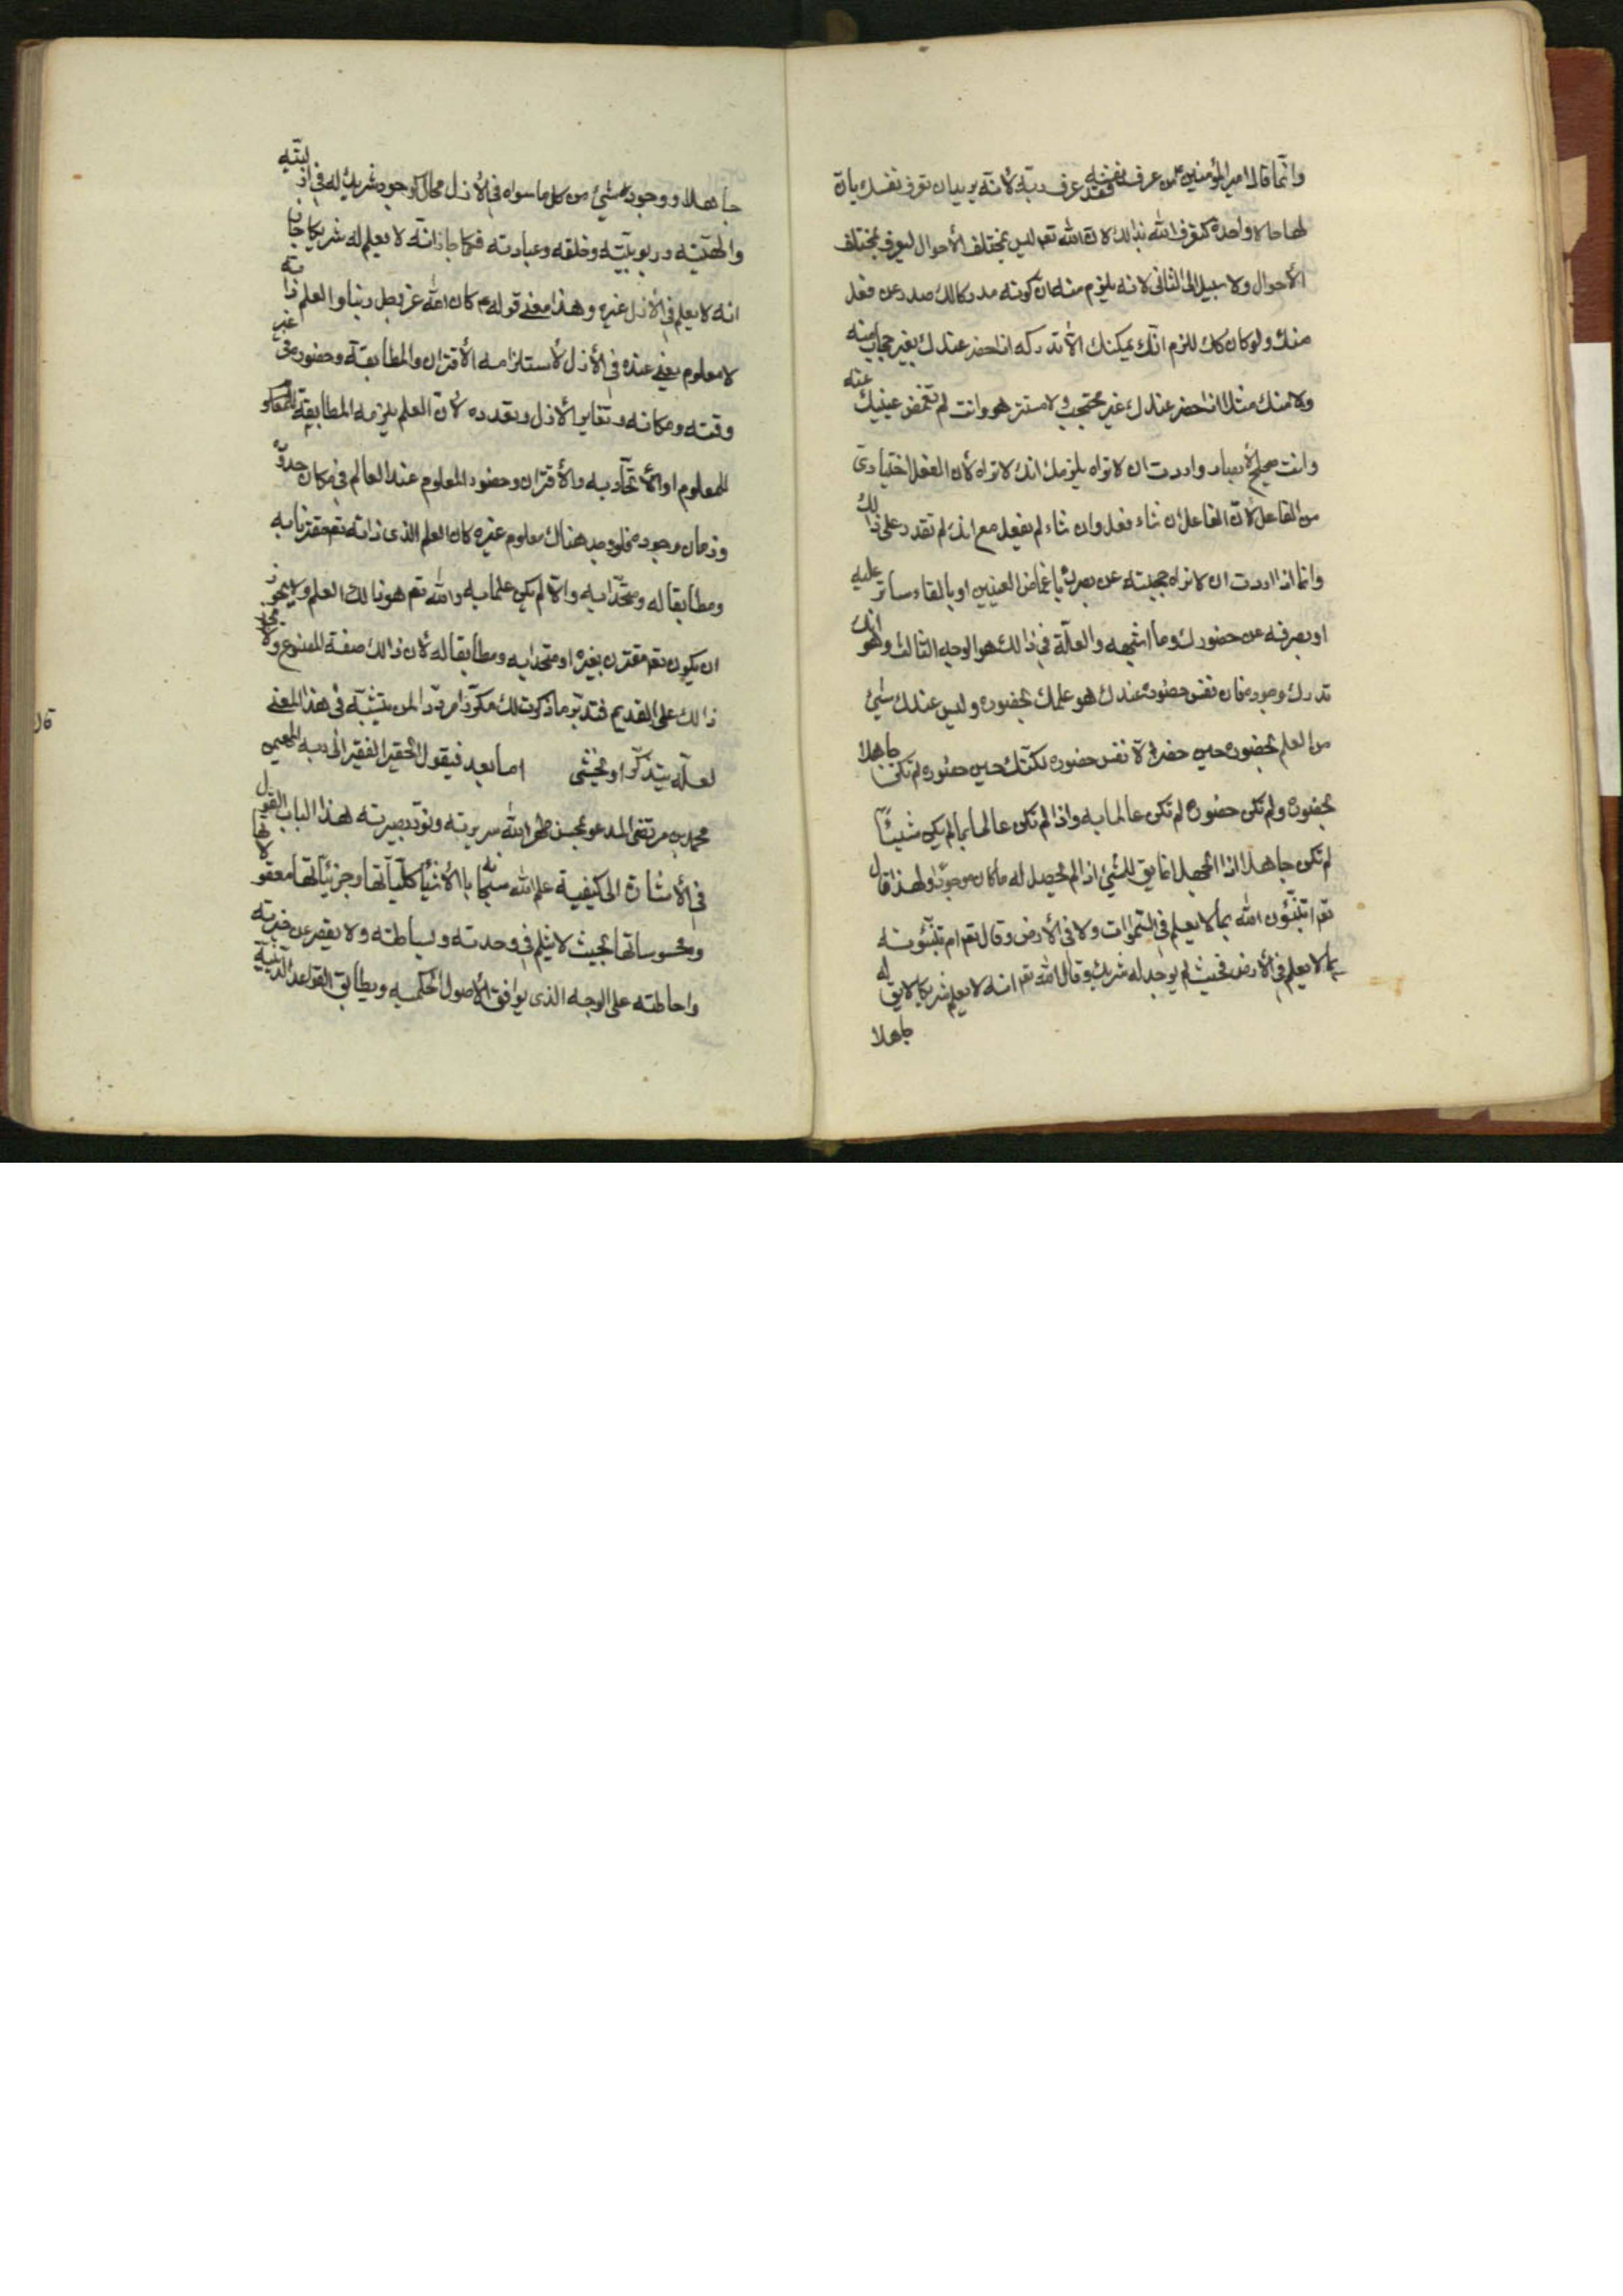 وانّما قال امير المؤمنين ع من عرف نفسه فقد عرف ربّه لانّه يريد ان تعرف نفسك بانّ
لها حالا واحدة لتعرف الله بذالك لانّ الله تعم ليس بمختلف الأحوال ليعرف بمختلف
الأحوال ولا سبيل الى الثانى لانه يلزم منه ان كونه مدركا لك صدر عن فعل
منك ولو كان كك للزم انّك يمكنك الّا تدركه اذا حضر عندك بغير حجاب منه
ولا منك مثلا اذا حضر عندك غير محتجب ولا مستتر هو وانت لم تغمض عينيك عنه
وانت صحيح الأبصار واردت ان لا تراه يلزمك انك لا تراه لأن الفعل اختيارىّ
من الفاعل لانّ الفاعل ان شاء فعل وان شاء لم يفعل مع انك لم تقدر على ذالك
وانما اذا اردت ان لا تراه حجبته عن بصرك باغماض العينين او بالقاء ساتر عليه
او بصرفه عن حضورك وما اشبهه والعلّة فى ذالك هو الوجه الثالث وهو انك
تدرك وجوده فان نفس حضوره عندك هو علمك بحضوره وليس عندك شئ
من العلم بحضوره حين حضر الّا نفس حضوره لكنّك حين حضوره لم تكن جاهلا
بحضوره ولم تكن حضوره لم تكن عالما به واذا لم تكن عالما بما لم يكن شيئاً
لم تكن جاهلا اذا الجهل انما يق للشئ اذا لم يحصل له ما كان موجودا ولهذا قال
تعم اتنبّؤن الله بما لا يعلم فى السّموات ولا فى الأرض وقال تعم ام تنبّؤنه
بما لا يعلم فى الأرض فحيث لم يوجد له شريك وقال الله تعم انه لا يعلم شريكا له لا يق
جاهلا
جاهلا ووجود شئ من كل ما سواه فى الأزل محال كوجود شريك له فى ازليّته
والهيّته وربوبيّته وخلقه وعبادته فكما جاز انّه لا يعلم له شريكا جاز
انه لا يعلم فى الأزل غيره وهذا معنى قوله ع كان الله عز وجل ربنا والعلم ذاته
لا معلوم يعنى عنده فى الأزل لأستلزامه الأقتران والمطابقة وحضوره فى غير
وقته ومكانه وتغاير الأزل وتعدده لانّ العلم يلزمه المطابقة للمعلو
للمعلوم او الأتحاد به والأقتران وحضور المعلوم عند العالم فى مكان حدوثه
وزمان وجوده فلو وجد هناك معلوم غيره كان العلم الذى ذاته تعم مقترنا به
ومطابقا له ومتحدا به والّا لم يكن علما به والله تعم هو ذالك العلم ولا يجوز
ان يكون تعم مقترن بغيره او متحدا به ومطابقا له لان ذالك صفة المصنوع ولا يجوز
ذالك على القديم فتدبّر ما ذكرت لك مكرّرا مردّدا لمن يتثبّته فى هذا المعنى
لعلّه يتذكّر او يخشى اما بعد فيقول الحقير الفقير الى ربه المهيمن
محمد بن مرتضى المدعو بمحسن طهر الله سريرته ونوّر بصيرته لهذا الباب القول
فى الأشارة الى كيفية علم الله سبحانه بالأشياء كليّاتها وجزئيّاتها معقولاتها
ومحسوساتها بحيث لا ينثلم فى وحدته وبساطته ولا يقصر عن خبرته
واحاطته على الوجه الذى يوافق الأصول الحكميه ويطابق القواعد الدينية
قال